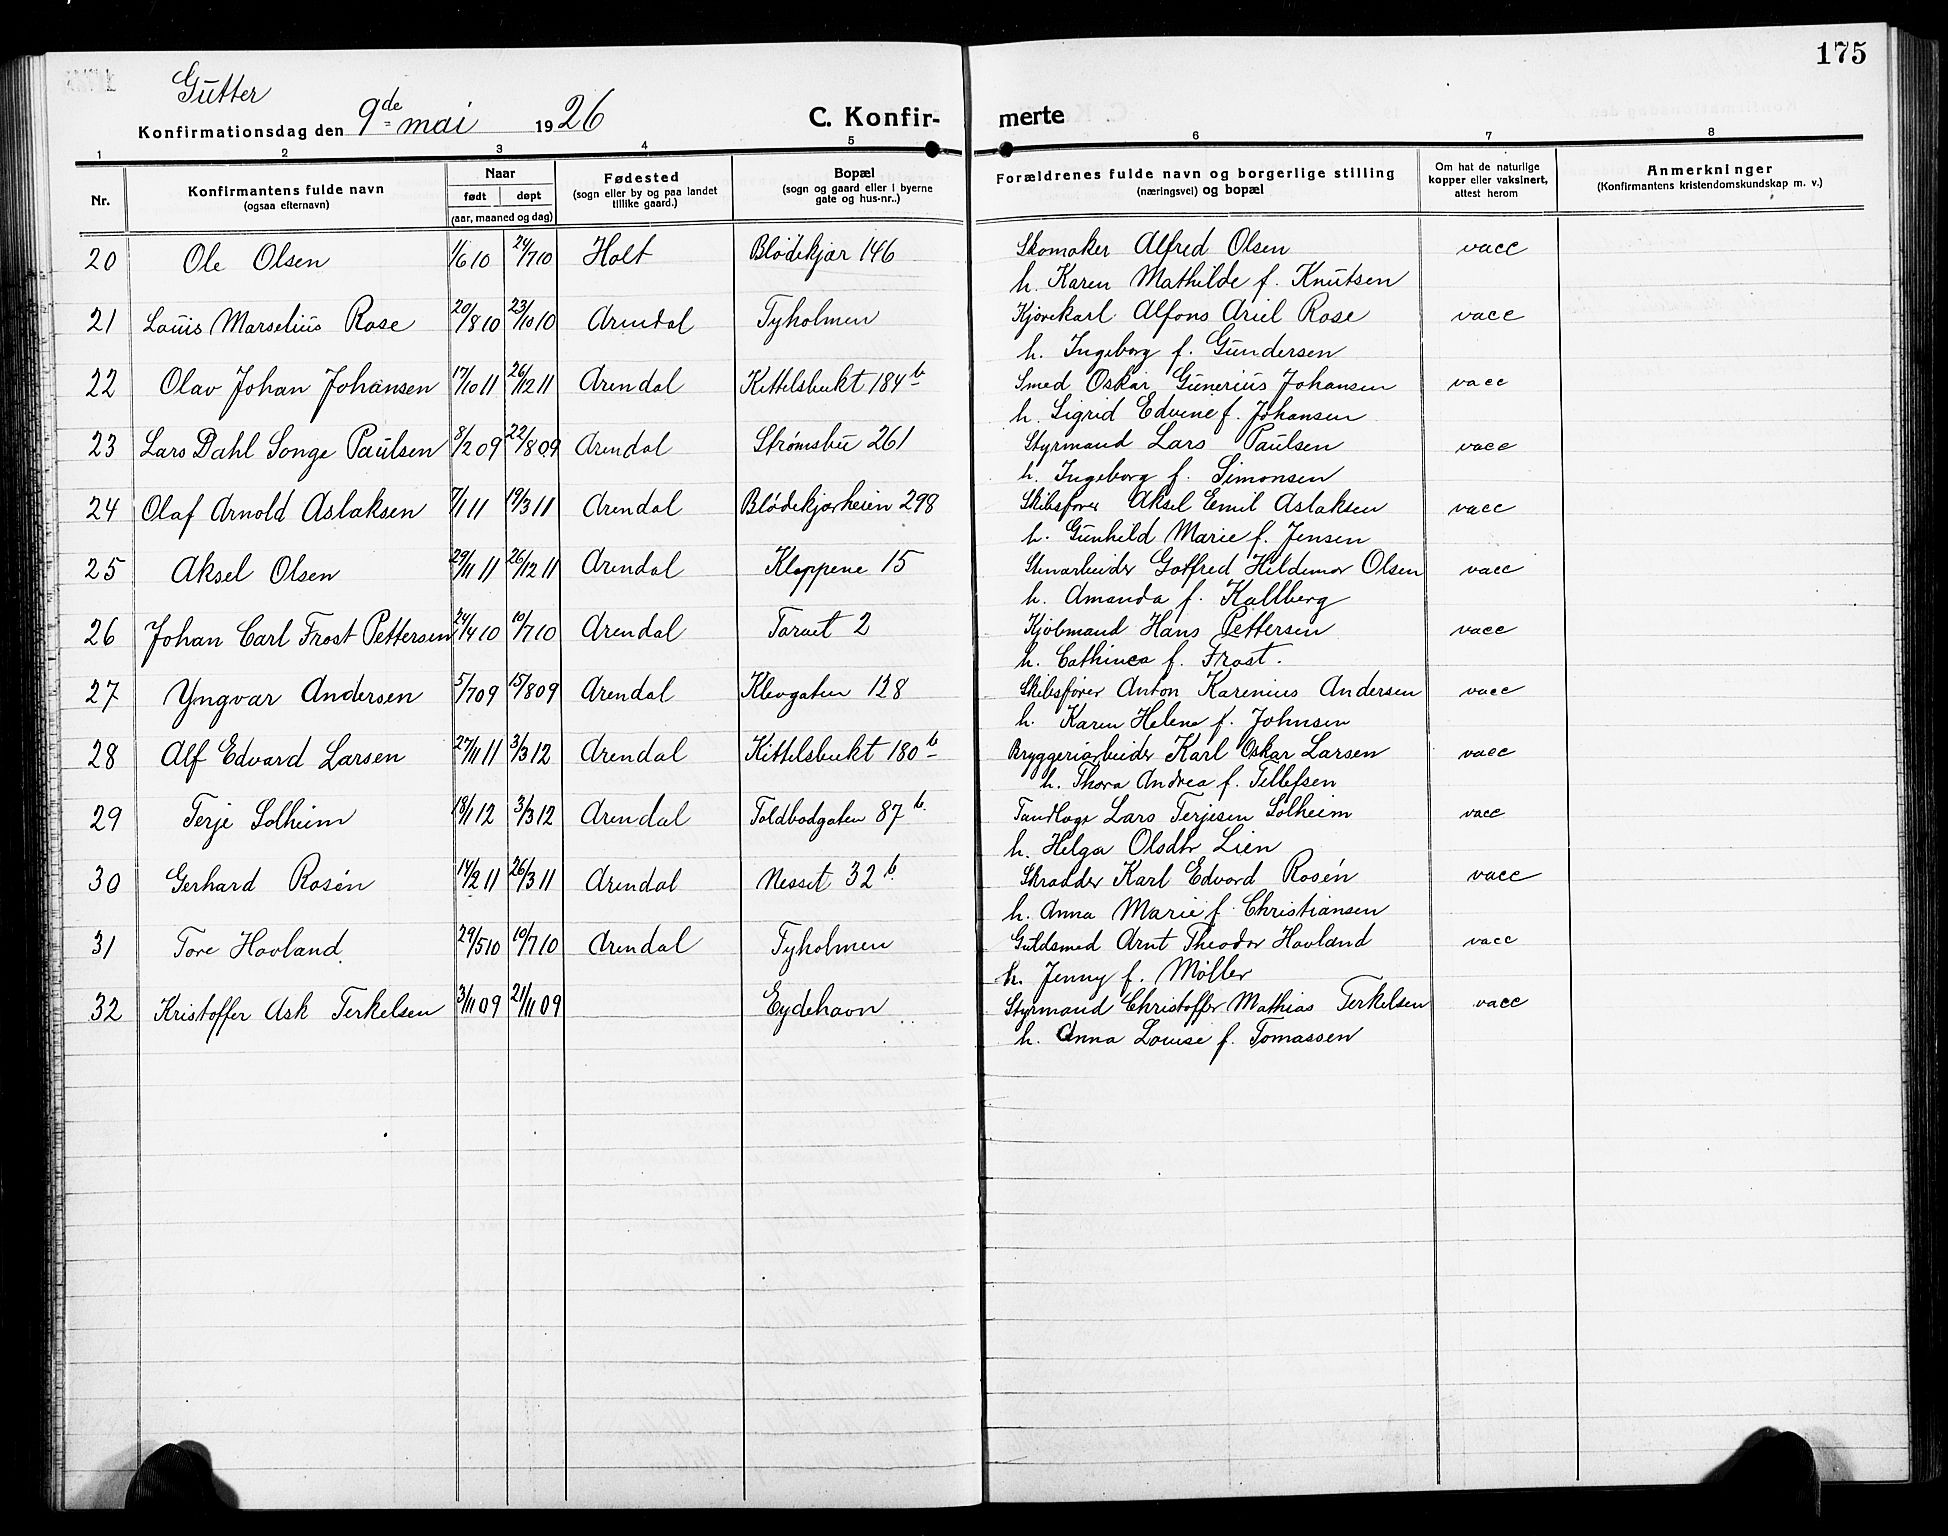 175
Gutter
Konfirmationsdag den 9de mai 1926
C. Konfirmerte
1 2 3 4 5 6 7 8
Nr.
Konfirmantens fulde navn
(ogsaa efternavn)
Naar
født døpt
(aar, maaned og dag)
Fødested
(sogn eller by og paa landet
tillike gaard.)
Bopæl
(sogn og gaard eller i byerne
gate og hus-nr..)
Forældrenes fulde navn og borgerlige stilling
(næringsvei) og bopæl
Om hat de naturlige
kopper eller vaksinert,
attest herom
Anmerkninger
(Konfirmantens kristendomskundskap m. v.)
20 Ole Olsen 1/6 10 24/7 10 Holt Blødekjær 146 Skomaker Alfred Olsen vacc
h. Karen Mathilde f. Knutsen
21 Louis Marselius Rose 20/8 10 23/10 10 Arendal Tyholmen Kjørekarl Alfons Ariel Rose vacc
h. Ingeborg f. Gundersen
22 Olav Johan Johansen 17/10 11 26/12 11 Arendal Kittelsbukt 184 b Smed Oskar Gunerius Johansen vacc
h. Sigrid Edvine f. Johansen
23 Lars Dahl Songe Paulsen 8/2 09 22/8 09 Arendal Strømsbu 261 Styrmand Lars Paulsen vacc
h. Ingeborg f. Simonsen
24 Olaf Arnold Aslaksen 7/1 11 19/3 11 Arendal Blødekjærheien 298 Skibsfører Aksel Emil Aslaksen vacc
h. Gunhild Marie f. Jensen
25 Aksel Olsen 29/11 11 26/12 11 Arendal Kloppene 15 Stenarbeider Gotfred Hildemor Olsen vacc
h. Amanda f. Kallberg
26 Johan Carl Frost Pettersen 24/4 10 10/7 10 Arendal Torvet 2 Kjøbmand Hans Pettersen vacc
h. Cathinca f. Frost.
27 Yngvar Andersen 5/7 09 15/8 09 Arendal Klevgaten 128 Skibsfører Anton Karenius Andersen vacc
h. Karen Helene f. Johnsen
28 Alf Edvard Larsen 27/11 11 3/3 12 Arendal Kittelsbukt 180 b Bryggeriarbeider Karl Oskar Larsen vacc
h. Thora Andrea f. Tellefsen
29 Terje Solheim 18/1 12 3/3 12 Arendal Toldbodgaten 87 b. Tandlæge Lars Terjesen Solheim vacc
h. Helga Olsdtr Lien
30 Gerhard Rosén 14/2 11 26/3 11 Arendal Nesset 32 b. Skrædder Karl Edvard Rosén vacc
h. Anna Marie f. Christiansen
31 Tore Hovland 29/5 10 10/7 10 Arendal Tyholmen Guldsmed Arnt Theodor Hovland vacc
h. Jenny f. Møller
32 Kristoffer Ask Terkelsen 3/11 09 21/11 09 Eydehavn Styrmand Christoffer Mathias Terkelsen vacc
h. Anna Louise f. Tomassen